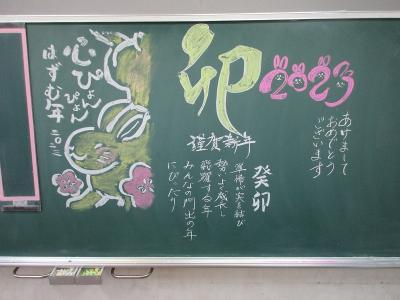 2023
あけまして
おめでとう
ございます
卯
謹賀新年
癸卯
準備が実を結び
勢いよく成長し
飛躍する年
みんなの門出の年
にぴったり
心ぴょん
ぴょん
はずむ年
二〇二三